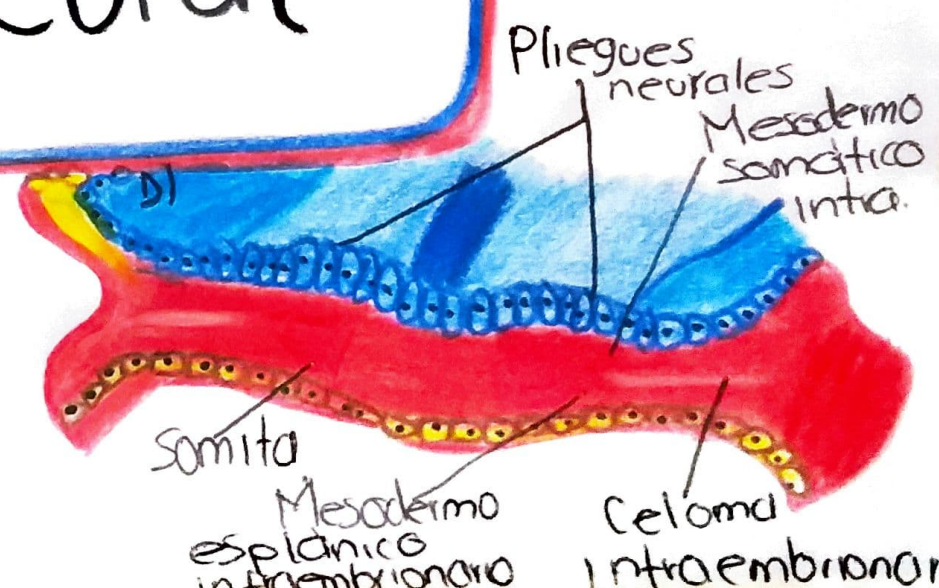 Pliegues
neurales
Mesodermo
somático
intra.
D)
Somita
Mesodermo
esplánico
intraembrionaro
Celoma